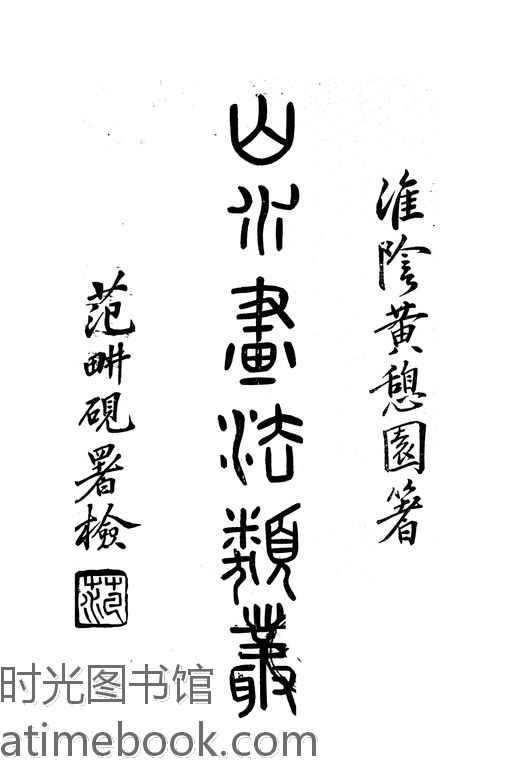 淮陰黃憩園著
山水畫法類叢
范畊硯署檢
范
时光图书馆
atimebook.com